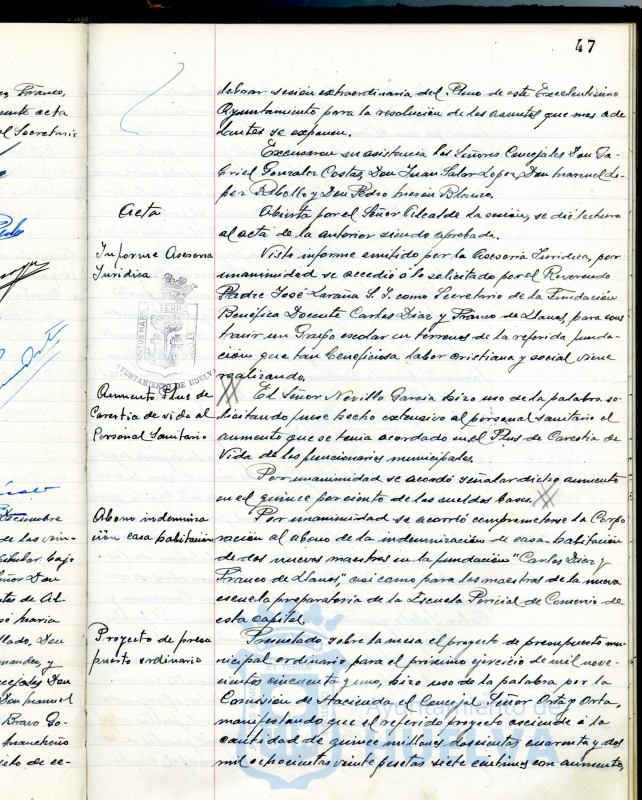 47
z Franco,
ente acta
el Secretario
Diciembre
de las vein-
titular bajo
eñor Don
ntes de Al-
sé María
llado, Don
nandez, y
cejales Don
Don Manuel
Bravo Go-
Mancheño
jeto de ce-
lebrar sesión extraordinaria del Pleno de este Excelentísimo
Ayuntamiento para la resolución de los asuntos que mas ade
lantes se exponen.
Excusaron su asistencia los Señores Concejales Don Ga-
briel Gonzalez Costas, Don Juan Salor Lopez, Don Manuel Lo-
pez Rebollo y Don Pedro Morón Blanco.
Acta
Abierta por el Señor Alcalde la sesión, se dió lectura
al acta de la anterior siendo aprobada.
Informe Asesoria
Juridica
Visto informe emitido por la Asesoria Juridica, por
unanimidad se accedió á lo solicitado por el Reverendo
Padre José Laraña S.J. como Secretario de la Fundación
Benéfica Docente Carlos Diaz y Franco de Llanos, para cons
truir un Grupo escolar en terrenos de la referida funda-
ción que tan beneficiosa labor cristiana y social viene
realizando.
AYUNTAMIENTO DE HUELVA
Aumento Plus de
Carestia de vida al
Personal Sanitario
El Señor Novillo Garcia hizo uso de la palabra so-
licitando fuese hecho extensivo al personal sanitario el
aumento que se tenia acordado en el Plus de Carestia de
Vida de los funcionarios municipales.
Por unanimidad se acordó señalar dicho aumento
en el quince por ciento de los sueldos bases.
Abono indemniza
ción casa habitación
Por unanimidad se acordó comprometerse la Corpo
ración al abono de la indemnización de casa-habitación
de dos nuevos maestros en la fundación "Carlos Diaz y
Franco de Llanos", asi como para los maestros de la nueva
escuela preparatoria de la Escuela Pericial de Comercio de
esta capital.
Proyecto de presu
puesto ordinario
Presentado sobre la mesa el proyecto de presupuesto mu-
nicipal ordinario para el próximo ejercicio de mil nove-
cientos cincuenta y uno, hizo uso de la palabra por la
Comisión de Hacienda el Concejal Señor Orta y Orta,
manifestando que el referido proyecto asciende á la
cantidad de quince millones doscientas cuarenta y dos
mil ochocientas veinte pesetas siete centimos con aumento,
Ayuntamiento de
HUELVA